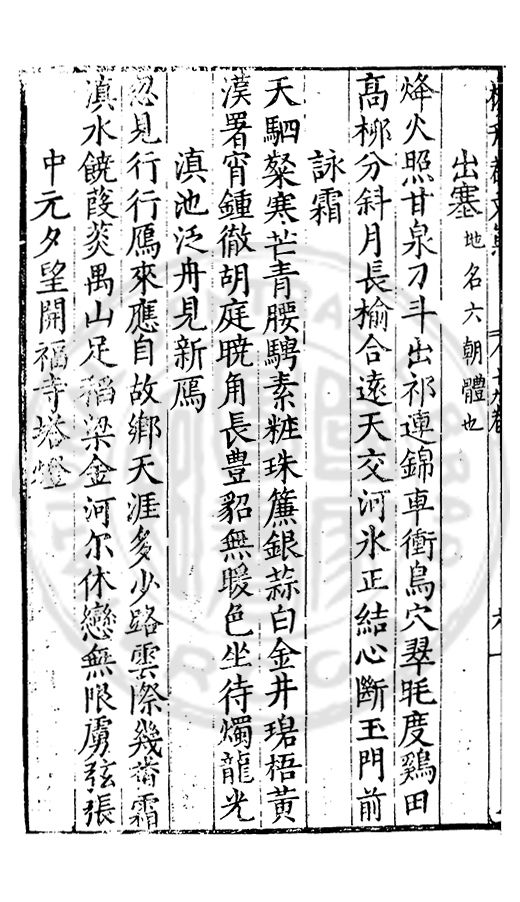 出塞 地名六朝體也
烽火照甘泉刀斗出祁連錦車衝鳥穴翠眊度鷄田
高栁分斜月長榆合遠天交河氷正結心斷玉門前
詠霜
天駟粲寒芒青腰騁素粧珠簾銀蒜白金井琚梧黃
漠署宵鍾徹胡庭曉角長豊貂無暖色坐待燭龍光
滇池泛舟見新鴈
忽見行行鴈來應自故鄉天涯多少路雲際幾畨霜
滇水饒葭菼禺山足稻梁金河尔休戀無限虜弦張
中元夕望開福寺塔燈